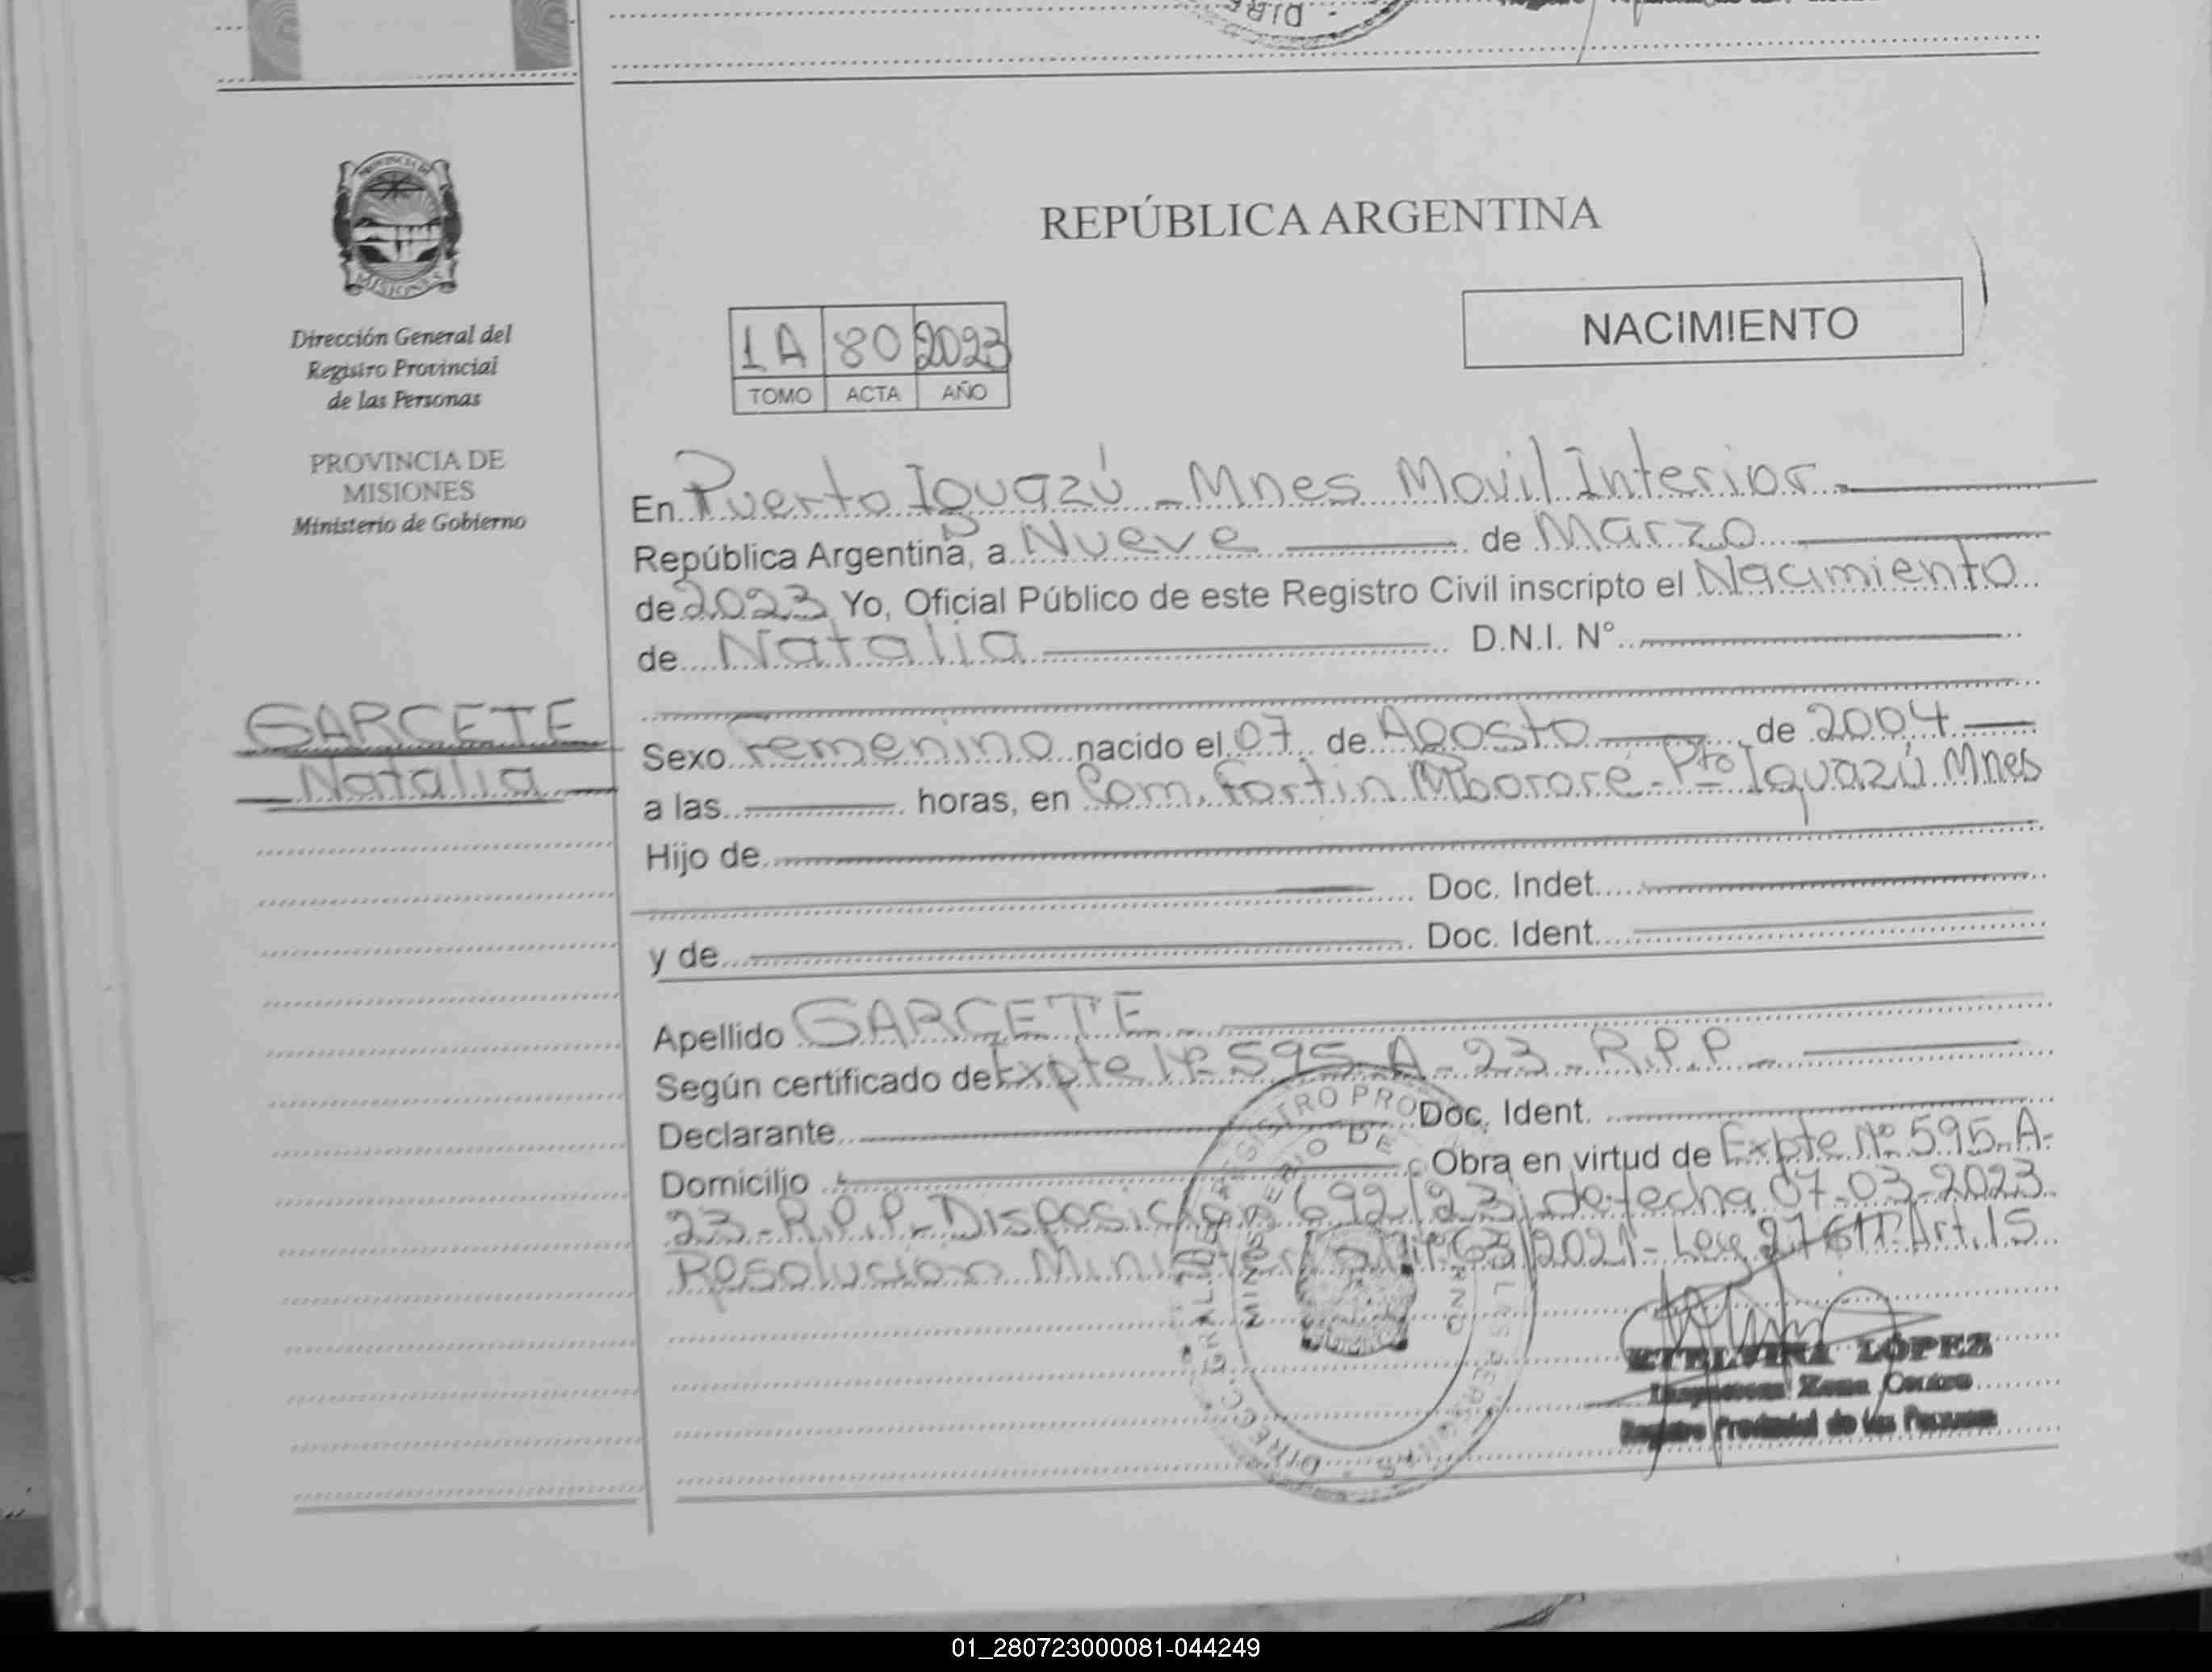 DIRE
PROVINCIA DE
MISIONES
Dirección General del
Registro Provincial
de las Personas
PROVINCIA DE
MISIONES
Ministerio de Gobierno
GARCETE
Natalia
REPÚBLICA ARGENTINA
NACIMIENTO
1A 80 2023
TOMO ACTA AÑO
En Puerto Iguazú - Mnes Movil Interior
República Argentina, a Nueve de Marzo
de 2023 Yo, Oficial Público de este Registro Civil inscripto el Nacimiento
de Natalia D.N.I. N°
Sexo Femenino nacido el 07 de Agosto de 2004
a las horas, en Com. Fortin Mbororé - Pto Iguazú Mnes
Hijo de
Doc. Indet.
y de Doc. Ident.
Apellido GARCETE
Según certificado de Expte Nº 595-A-23-R.P.P-
Declarante Doc. Ident.
Domicilio Obra en virtud de Expte Nº 595-A-
23-R.P.P- Disposición 692/23 de fecha 07-03-2023
Resolución Ministerial Nº 63/2021- Ley 27611 Art. 15
ETELVINA LOPEZ
Inspectora Zona Centro
Registro Provincial de las Personas
01_280723000081-044249